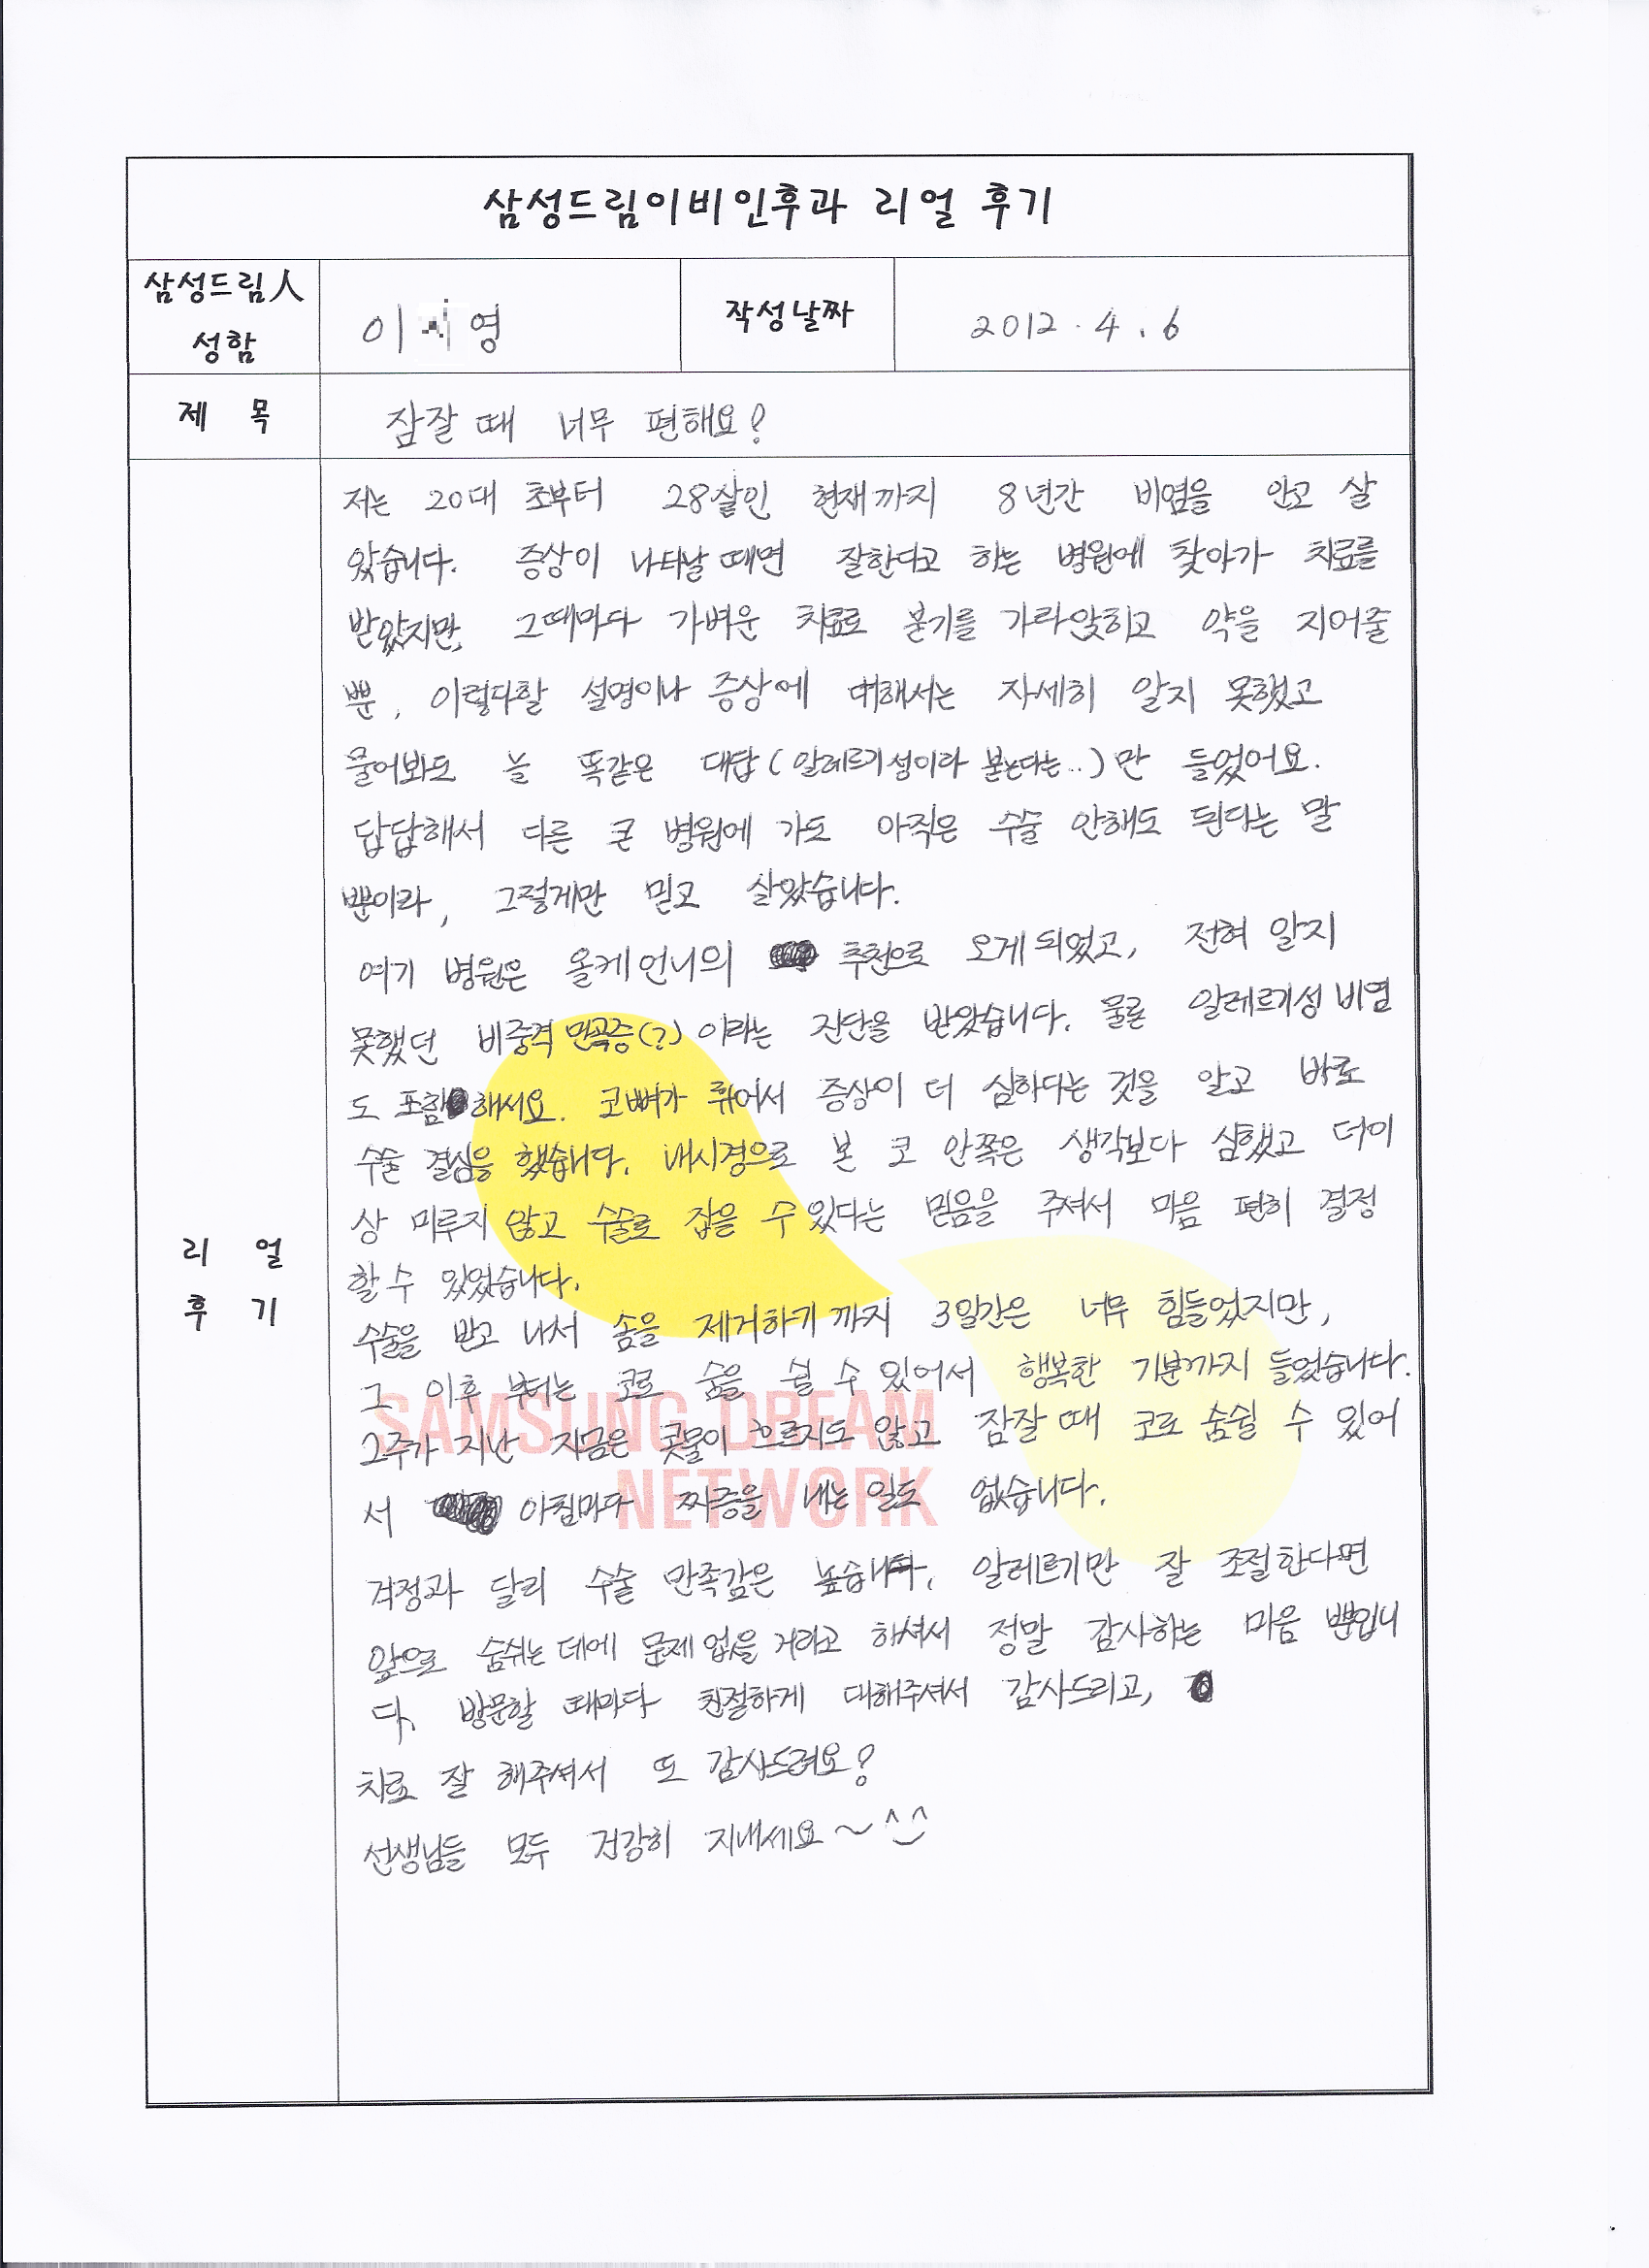 삼성드림이비인후과 리얼 후기
삼성드림人
성함
이 영
작성날짜
2012. 4. 6
제 목
잠잘 때 너무 편해요?
저는 20대 초부터 28살인 현재까지 8년간 비염을 안고 살
았습니다. 증상이 나타날 때면 잘한다고 하는 병원에 찾아가 치료를
받았지만, 그때마다 가벼운 치료로 붇기를 가라앉히고 약을 지어줄
뿐, 이렇다할 설명이나 증상에 대해서는 자세히 알지 못했고
물어봐도 늘 똑같은 대답(알레르기성이라 붇는다는..)만 들었어요.
답답해서 다른 큰 병원에 가도 아직은 수술 안해도 된다는 말
뿐이라, 그렇게만 믿고 살았습니다.
여기 병원은 올케언니의 추천으로 오게되었고, 전혀 알지
못했던 비중격만곡증(?)이라는 진단을 받았습니다. 물론 알레르기성 비염
도 포함해서요. 코뼈가 휘어서 증상이 더 심하다는 것을 알고 바로
수술 결심을 했습니다. 내시경으로 본 코 안쪽은 생각보다 심했고 더이
상 미루지 않고 수술로 잡을 수 있다는 믿음을 주셔서 마음 편히 결정
할 수 있었습니다.
수술을 받고 나서 솜을 제거하기 까지 3일간은 너무 힘들었지만,
그 이후 부터는 코로 숨을 쉴 수 있어서 행복한 기분까지 들었습니다.
2주가 지난 지금은 콧물이 흐르지도 않고 잠잘 때 코로 숨쉴 수 있어
서 아침마다 짜증을 내는 일도 없습니다.
걱정과 달리 수술 만족감은 높습니다. 알레르기만 잘 조절한다면
앞으로 숨쉬는 데에 문제 없을 거라고 하셔서 정말 감사하는 마음 뿐입니
다. 방문할 때마다 친절하게 대해주셔서 감사드리고,
치료 잘 해주셔서 또 감사드려요?
선생님들 모두 건강히 지내세요~ ^_^
리 얼
후 기
SAMSUNG DREAM
NETWORK